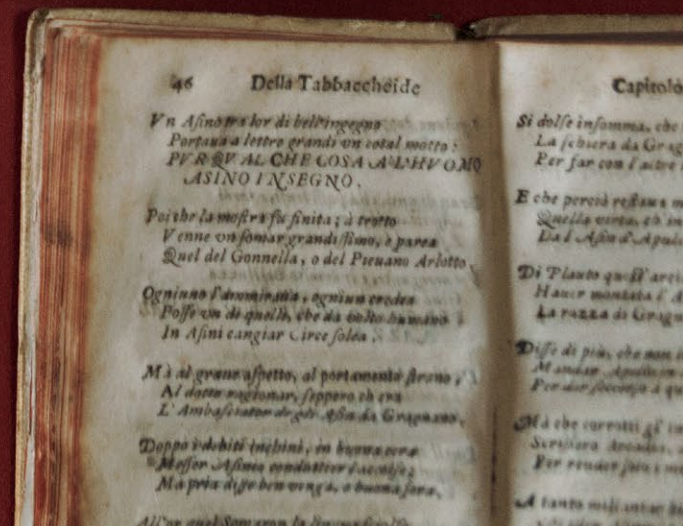 46 Della Tabbaccheide
Vn Asino tra lor di bell'ingegno
Portaua a lettre grandi vn cotal motto:
PVR QVALCHE COSA A L'HVOMO
ASINO INSEGNO.
Poi che la mostra fu finita; à trotto
Venne vn somar grandissimo, e parea
Quel del Gonnella, o del Pieuano Arlotto.
Ogniuno l'ammiraua, ogniun credea
Fosse vn di quelli, che da volto humano
In Asini cangiar Circe solea.
Mà al graue aspetto, al portamento strano,
Al dotto ragionar, seppero ch'era
L'Ambasciator de gli Asin da Gragnano.
Doppo i debiti inchini, in buona cera
Messer Asinio condottier l'accolse;
Ma pria disse ben venga, e buona sera.
All'or quel Somaron la lingua sciolse
Capitolo
Si dolse insomma, che
La schiera da Grag
Per far con l'altre
E che perciò restaua
Quella virtù, ch'in
Dal' Asin d'Apule
Di Plauto quell'arci
Hauer montata l'A
La razza di Gragn
Disse di più, che non
Mandar
Per dar soccorso à qu
Mà che corrotti gl'
Scrissero Arcadia,
Per render
A tanto